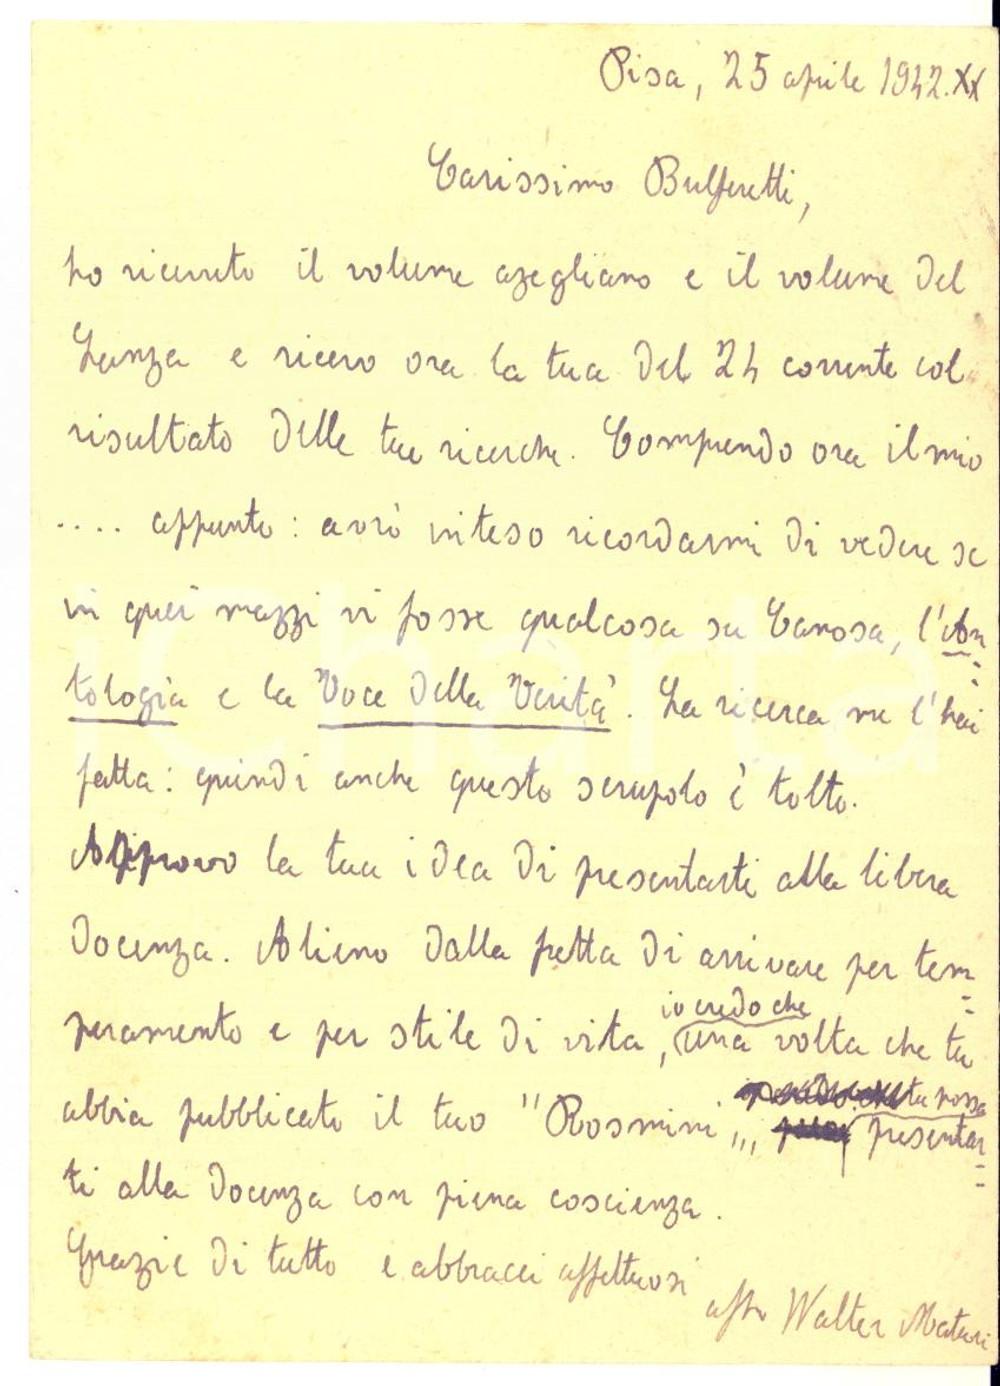 Pisa, 25 aprile 1942.XX
Carissimo Bulferetti,
ho ricevuto il volume azegliano e il volume del
Lanza e ricevo ora la tua del 24 corrente col
risultato delle tue ricerche. Comprendo ora il mio
.... appunto: avrò inteso ricordarmi di vedere se
in quei mazzi vi fosse qualcosa su Canosa, l'An=
tologia e la "Voce della Verità". La ricerca me l'hai
fatta: quindi anche questo scrupolo è tolto.
Approvo la tua idea di presentarti alla libera
docenza. Alieno dalla fretta di arrivare per tem=
io credo che
peramento e per stile di vita, una volta che tu
tu possa
abbia pubblicato il tuo "Rosmini", presentar=
ti alla docenza con piena coscienza.
Grazie di tutto e abbracci affettuosi
aff.mo Walter Maturi